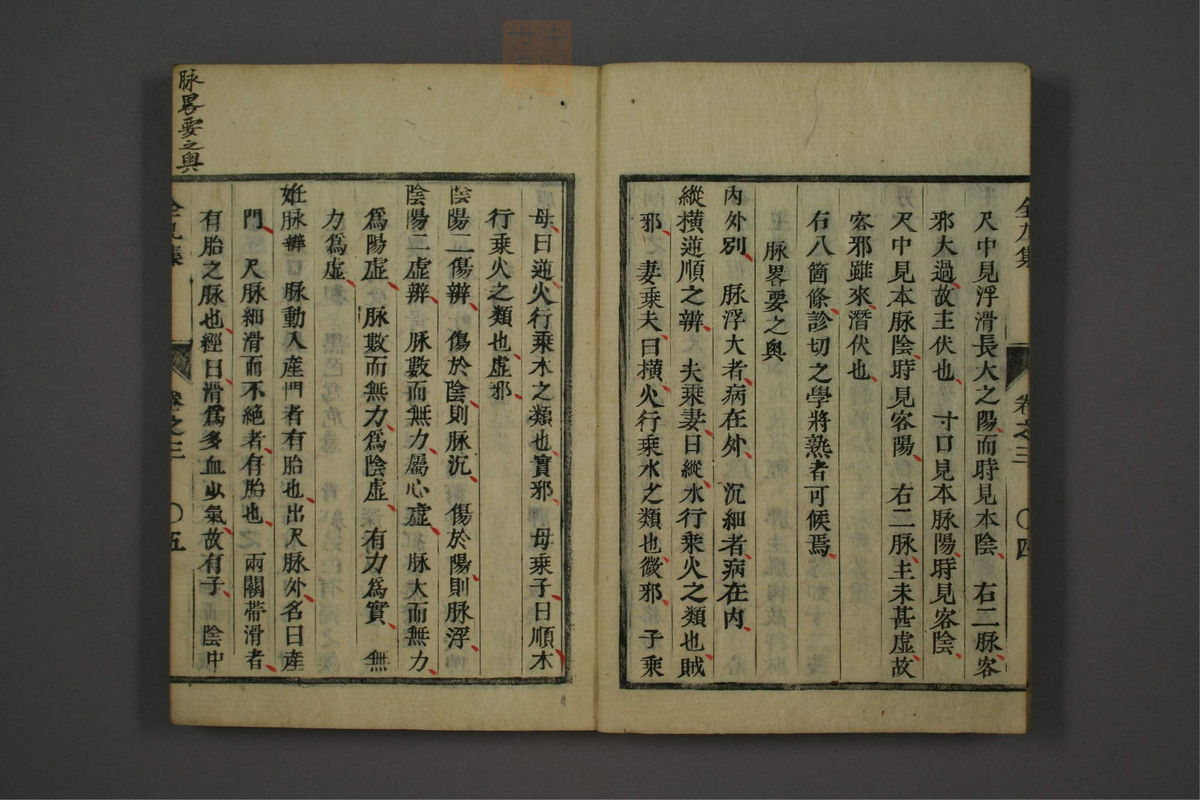 全九集 卷之三 〇四
尺中見浮滑長大之陽而時見本陰 右二脉客
邪大過故主伏也 寸口見本脉陽時見客陰
尺中見本脉陰時見客陽 右二脉主未甚虚故
客邪雖來潛伏也
右八箇條診切之學將熟者可候焉
脉畧要之奥
内外別 脉浮大者病在外 沉細者病在内
縱橫逆順之辨 夫乗妻曰縱水行乗火之類也賊
邪 妻乗夫曰橫火行乗水之類也微邪 子乗
母曰逆火行乗木之類也實邪 母乗子曰順木
行乗火之類也虚邪
陰陽二傷辨 傷於陰則脉沉 傷於陽則脉浮
陰陽二虚辨 脉數而無力屬心虚 脉大而無力
爲陽虚 脉數而無力爲陰虚 有力爲實 無
力爲虚
妊脉辨 脉動入産門者有胎也出尺脉外名曰産
門 尺脉細滑而不絶者有胎也 兩關帶滑者
有胎之脉也經曰滑爲多血少氣故有子 陰中
全九集 卷之三 〇五
脉畧要之奥